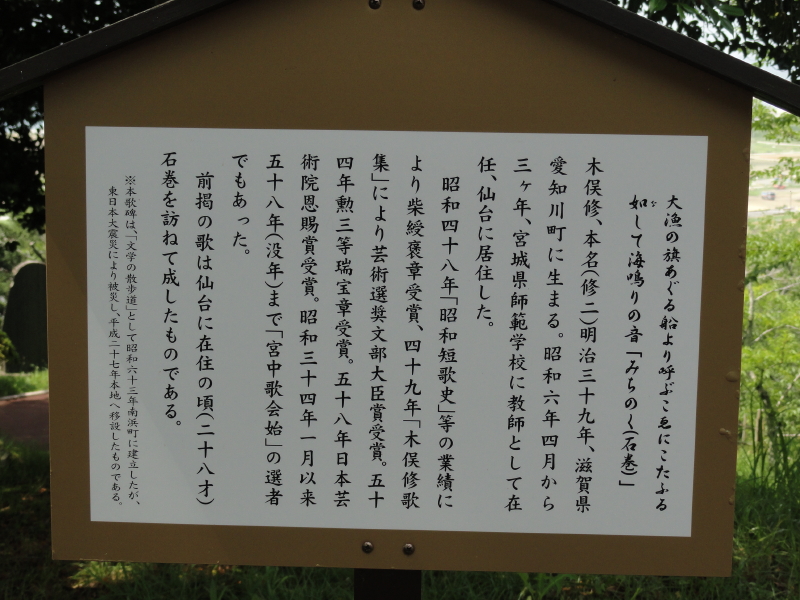 大漁の旗あぐる船より呼ぶこゑにこたふる
如して海鳴りの音「みちのく(石巻)」
木俣修、本名(修二)明治三十九年、滋賀県
愛知川町に生まる。昭和六年四月から
三ヶ年、宮城県師範学校に教師として在
任、仙台に居住した。
昭和四十八年「昭和短歌史」等の業績に
より柴綬褒章受賞、四十九年「木俣修歌
集」により芸術選奨文部大臣賞受賞。五十
四年勲三等瑞宝章受賞。五十八年日本芸
術院恩賜賞受賞。昭和三十四年一月以来
五十八年(没年)まで「宮中歌会始」の選者
でもあった。
前掲の歌は仙台に在住の頃(二十八才)
石巻を訪ねて成したものである。
※本歌碑は、「文学の散歩道」として昭和六十三年南浜町に建立したが、
東日本大震災により被災し、平成二十七年本地へ移設したものである。